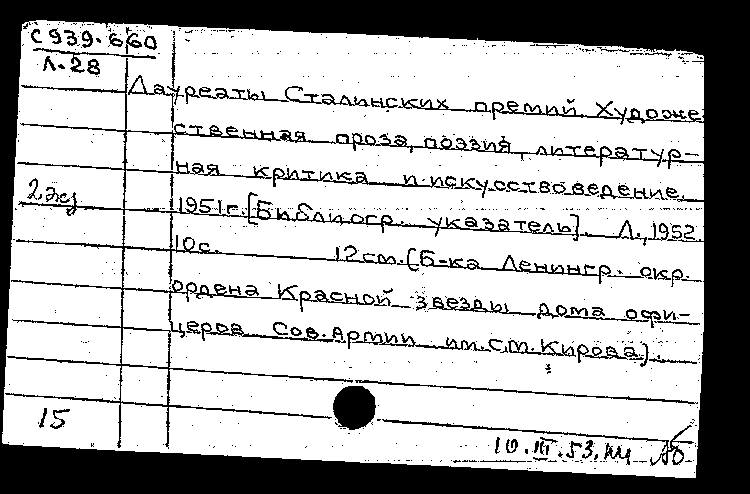 С939.660
Л-28
Лауреаты Сталинских премий. Художе
ственная проза, поэзия, литератур-
ная критика и искусствоведение.
2 экз
1951 г. [Библиогр. указатель]. Л., 1952.
10 с. 12 см. (Б-ка Ленингр. окр.
ордена Красной звезды дома офи-
церов Сов. Армии им. С.М. Кирова).
15
10.III.53.